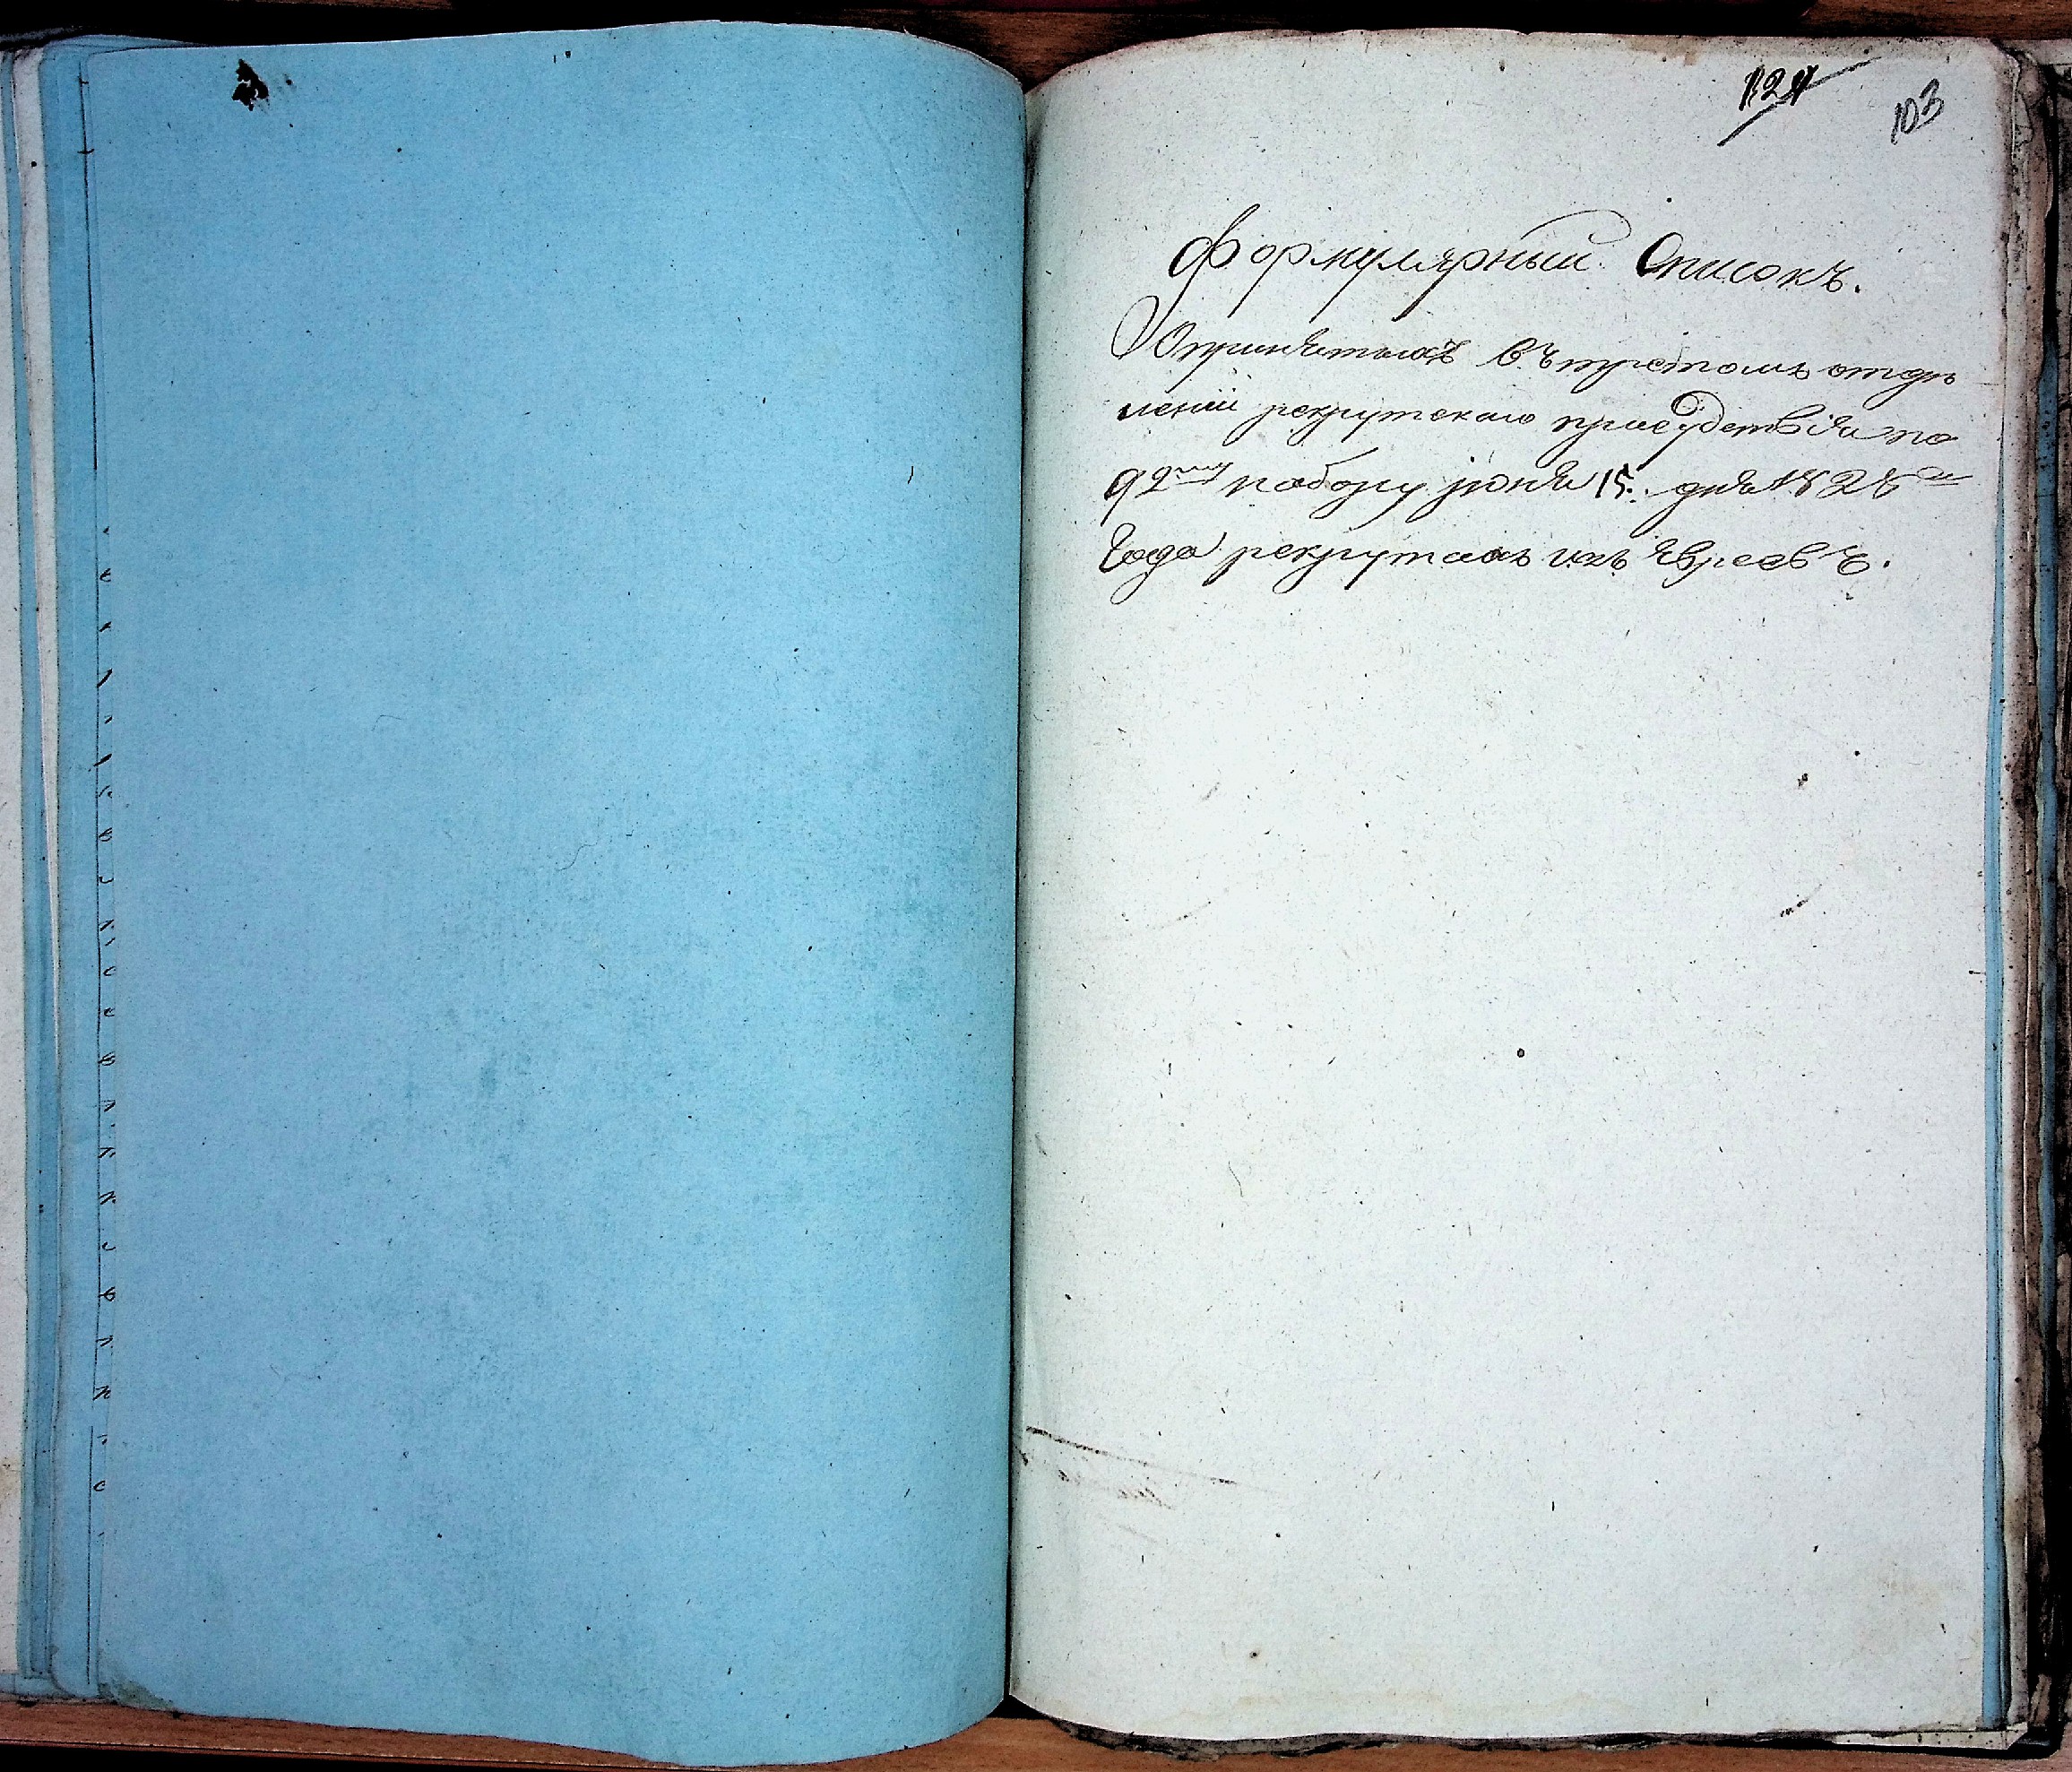 124
103
Формулярный Списокъ.
Опринятыхъ въ третомъ отде
лении рекрутскаго присудствія по
92му набору июня 15. дня 1828го
Года рекрутахъ изъ Евреевъ.